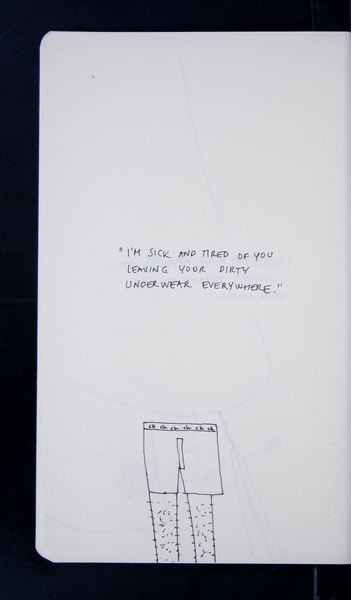 "I'M SICK AND TIRED OF YOU
LEAVING YOUR DIRTY
UNDERWEAR EVERYWHERE."
ck ck ck ck ck ck